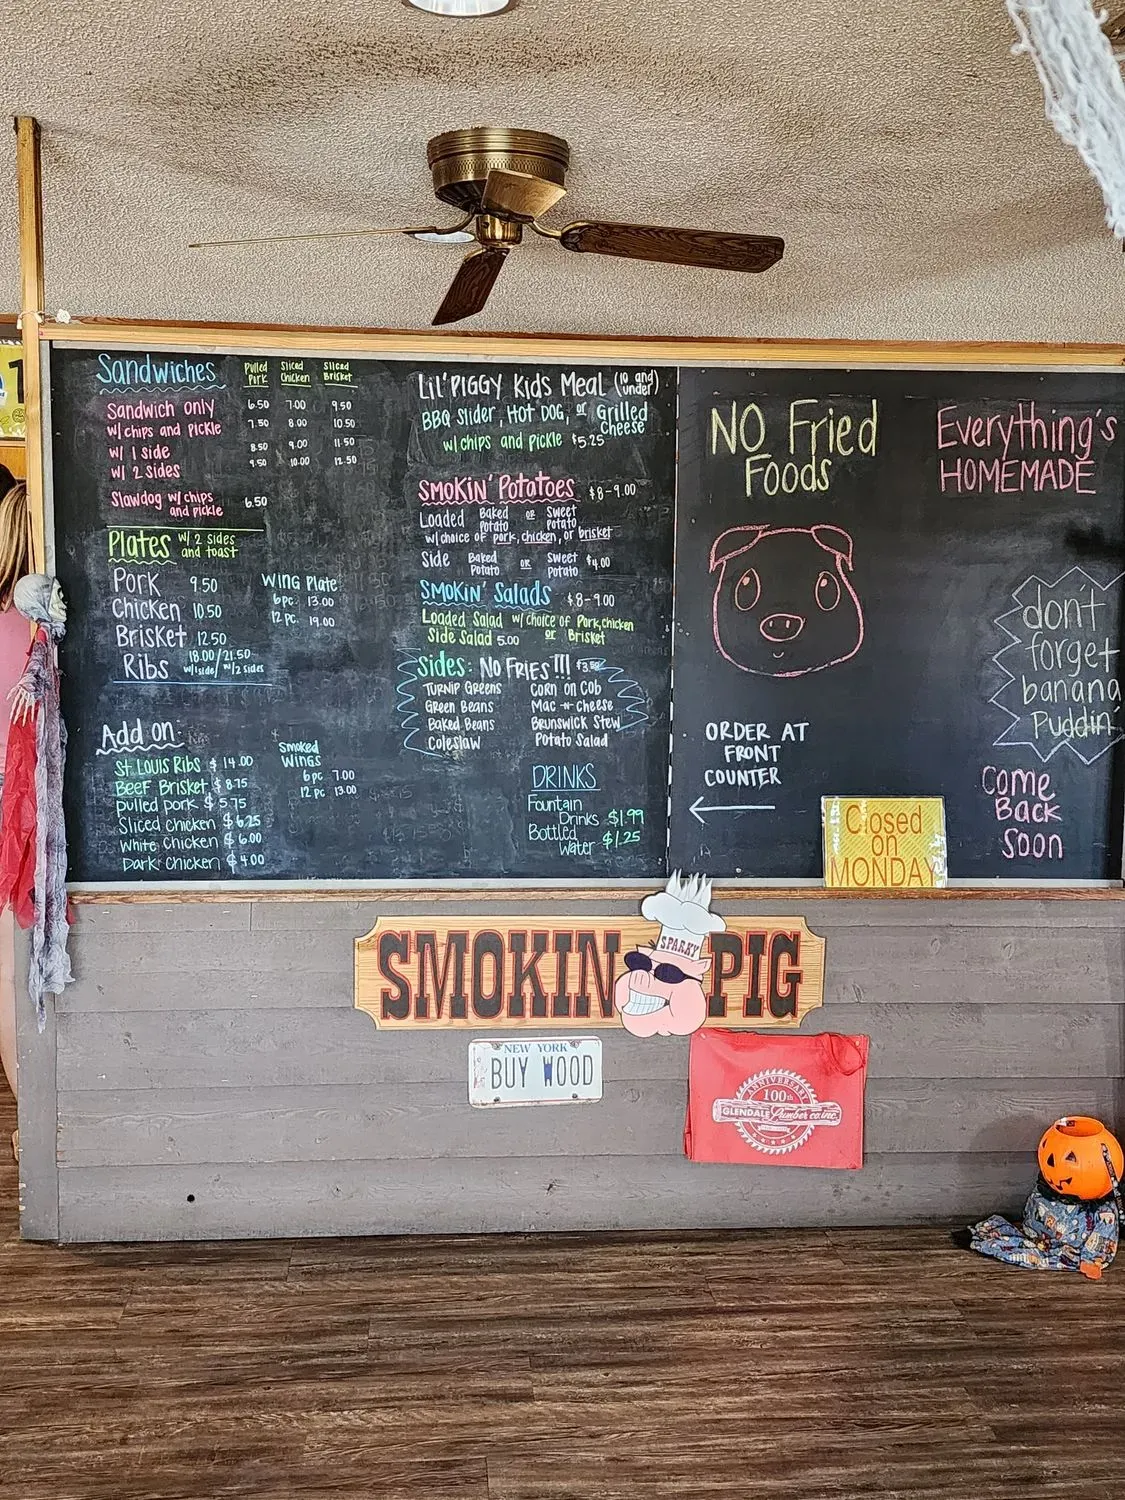 Sandwiches
Pulled Pork
Sliced Chicken
Sliced Brisket
Sandwich only 6.50 7.00 9.50
w/ chips and pickle 7.50 8.00 10.50
w/ 1 side 8.50 9.00 11.50
w/ 2 sides 9.50 10.00 12.50
Slawdog w/ chips and pickle 6.50
Plates w/ 2 sides and toast
Pork 9.50
Chicken 10.50
Brisket 12.50
Ribs 18.00/21.50
w/1 side/ w/2 sides
Wing Plate
6pc. 13.00
12 pc. 19.00
Add on
St. Louis Ribs $ 14.00
Beef Brisket $ 8.75
pulled pork $ 5.75
Sliced Chicken $ 6.25
White Chicken $ 6.00
Dark Chicken $ 4.00
Smoked
Wings
6pc 7.00
12 pc 13.00
Lil' Piggy Kids Meal (10 and under)
BBQ Slider, Hot Dog, or Grilled Cheese
w/ chips and pickle $5.25
Smokin' Potatoes $8-9.00
Loaded Baked Potato or Sweet Potato
w/choice of pork, chicken, or brisket
Side Baked Potato or Sweet Potato $4.00
Smokin' Salads $8-9.00
Loaded Salad w/choice of Pork, chicken
Side Salad 5.00 or Brisket
Sides: NO FRIES!!!
Turnip Greens
Green Beans
Baked Beans
Coleslaw
Corn on Cob
Mac-n-Cheese
Brunswick Stew
Potato Salad
DRINKS
Fountain
Drinks $1.99
Bottled
Water $1.25
NO Fried
Foods
Everything's
HOMEMADE
ORDER AT
FRONT
COUNTER
don't
forget
banana
Puddin'
Come
Back
Soon
Closed
on
MONDAY
SMOKIN PIG
SPARKY
NEW YORK
BUY WOOD
ANNIVERSARY
100th
GLENDALE Lumber co. inc.